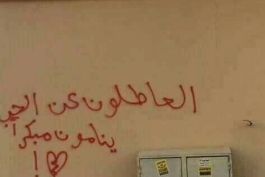 العاطلون عن الحب
ينامون مبكراً
!